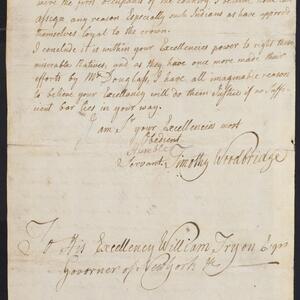 were the first occupants of the country I believe none can
assign any reason especially such Indians as have approved
themselves loyal to the crown.
I conclude it is within your Excellencies power to right these
miserable Natives, and as they have once more made their
efforts by Mr Douglass, I have all imaginable reason
to believe your Excellency will do them Justice if no Suffi-
cient bar lies in your way.
I am Sr your Excellencies most
Obedient
Humble
Servant Timothy Woodbridge
To His Excellency William Tryon Esqr
Governer of New York &c